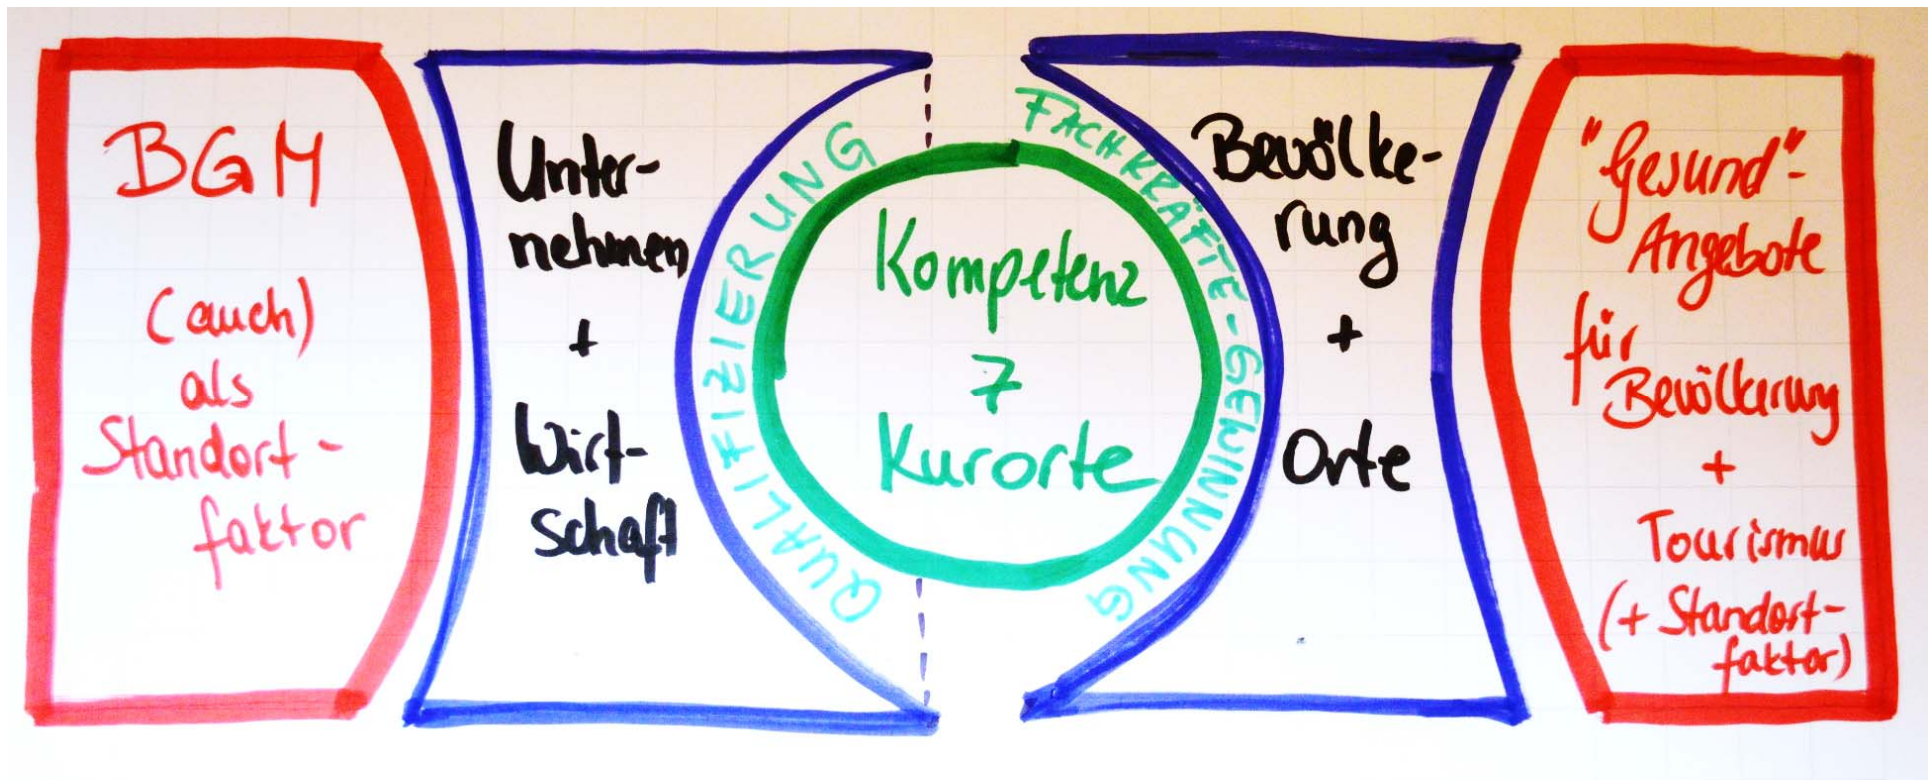 BGM
(auch)
als
Standort-
faktor
Unter-
nehmen
+
Wirt-
schaft
QUALIFIZIERUNG
Kompetenz
7
Kurorte
FACHKRÄFTE-GEWINNUNG
Bevölke-
rung
+
Orte
"Gesund"-
Angebote
für
Bevölkerung
+
Tourismus
(+ Standort-
faktor)